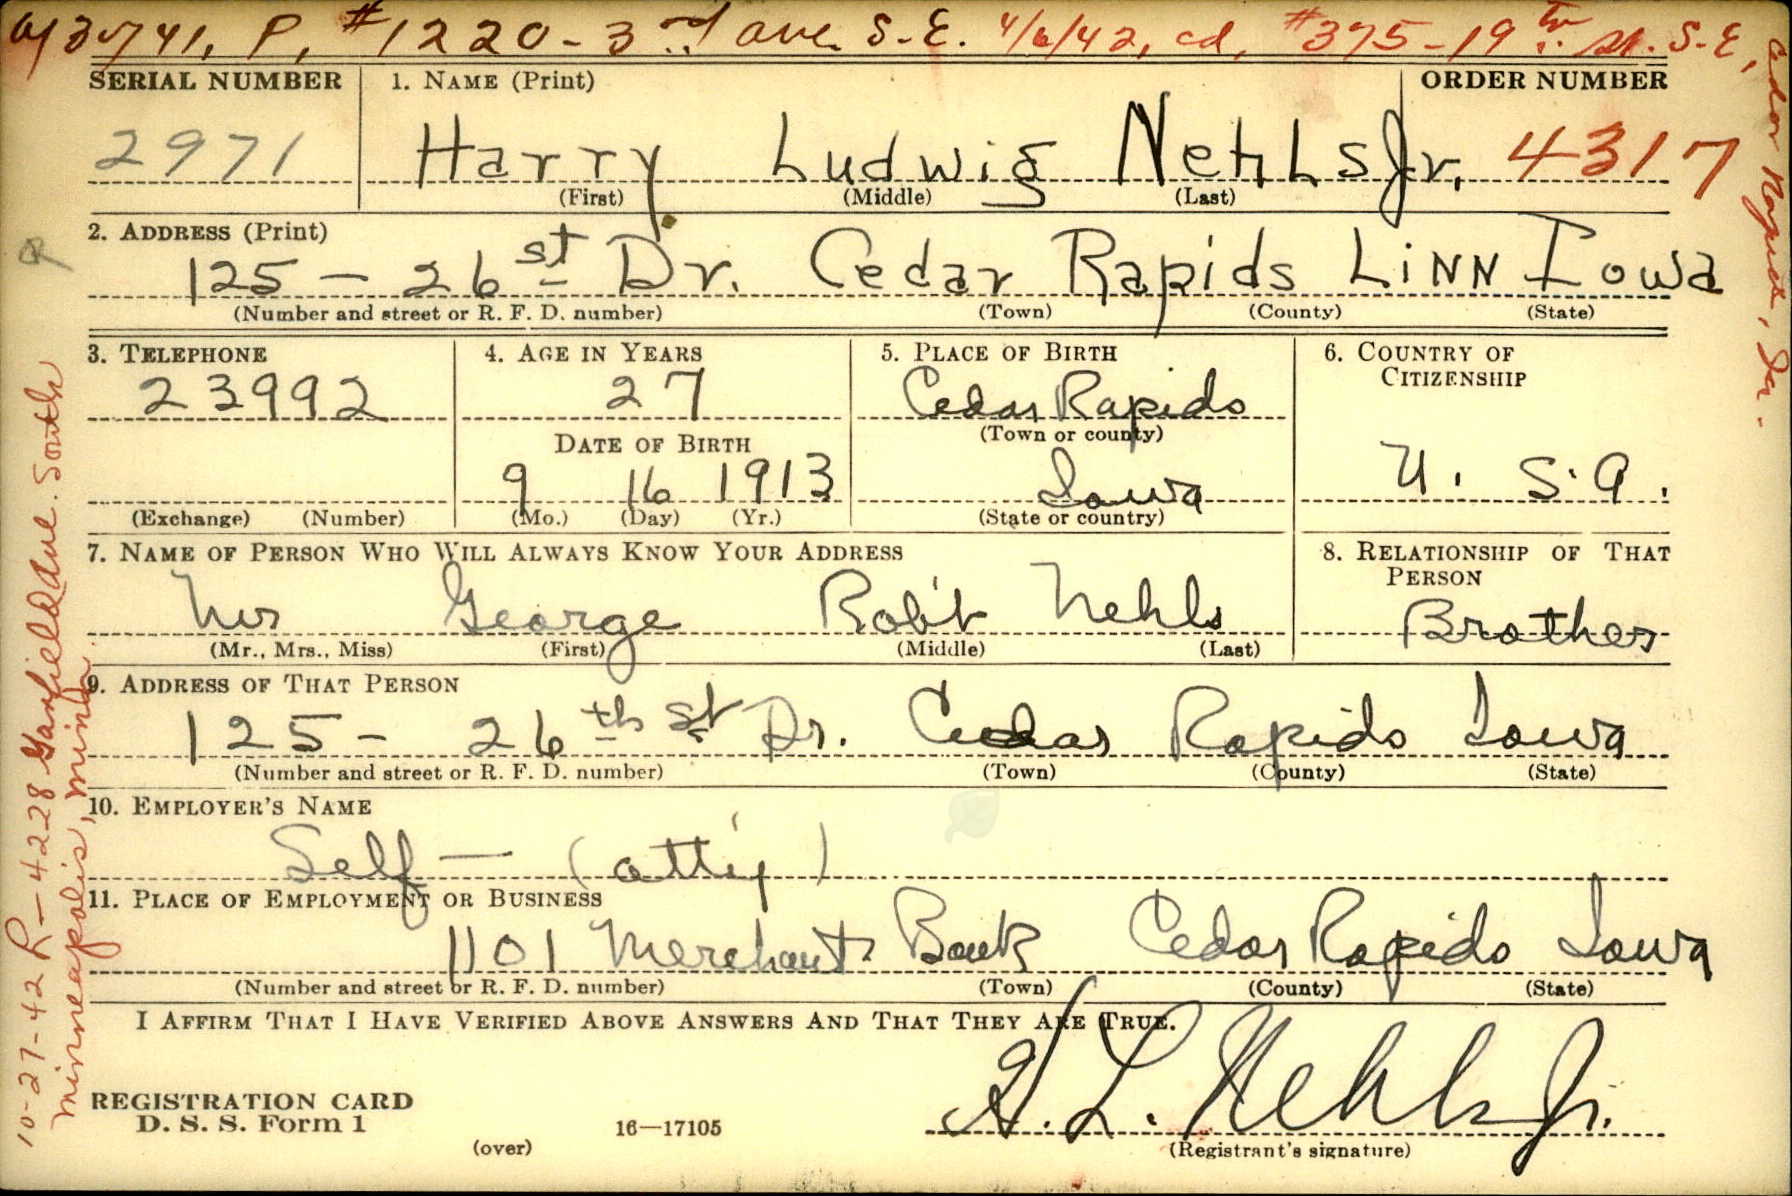 P. #1220 - 3rd ave S.E. 4/6/42, cd, #375 - 19th St. S.E,
Cedar Rapids, Ia.
SERIAL NUMBER 1. NAME (Print) ORDER NUMBER
2971 Harry Ludwig Nehls Jr. 4317
(First) (Middle) (Last)
2. ADDRESS (Print)
125 - 26 st Dr. Cedar Rapids LiNN Iowa
(Number and street or R. F. D. number) (Town) (County) (State)
3. TELEPHONE 4. AGE IN YEARS 5. PLACE OF BIRTH 6. COUNTRY OF CITIZENSHIP
23992 27 Cedar Rapids
DATE OF BIRTH (Town or county)
9 16 1913 Iowa U. S. A.
(Exchange) (Number) (Mo.) (Day) (Yr.) (State or country)
7. NAME OF PERSON WHO WILL ALWAYS KNOW YOUR ADDRESS 8. RELATIONSHIP OF THAT PERSON
Mr George Rob't Nehls Brother
(Mr., Mrs., Miss) (First) (Middle) (Last)
9. ADDRESS OF THAT PERSON
125 - 26th St Dr. Cedar Rapids Iowa
(Number and street or R. F. D. number) (Town) (County) (State)
10. EMPLOYER'S NAME
Self - (att'y)
11. PLACE OF EMPLOYMENT OR BUSINESS
1101 Merchants Bank Cedar Rapids Iowa
(Number and street or R. F. D. number) (Town) (County) (State)
I AFFIRM THAT I HAVE VERIFIED ABOVE ANSWERS AND THAT THEY ARE TRUE.
H. L. Nehls Jr.
REGISTRATION CARD
D. S. S. Form 1 16—17105
(over) (Registrant's signature)
10-27-42 R - 4228 Garfield Ave. South
Minneapolis, Minn